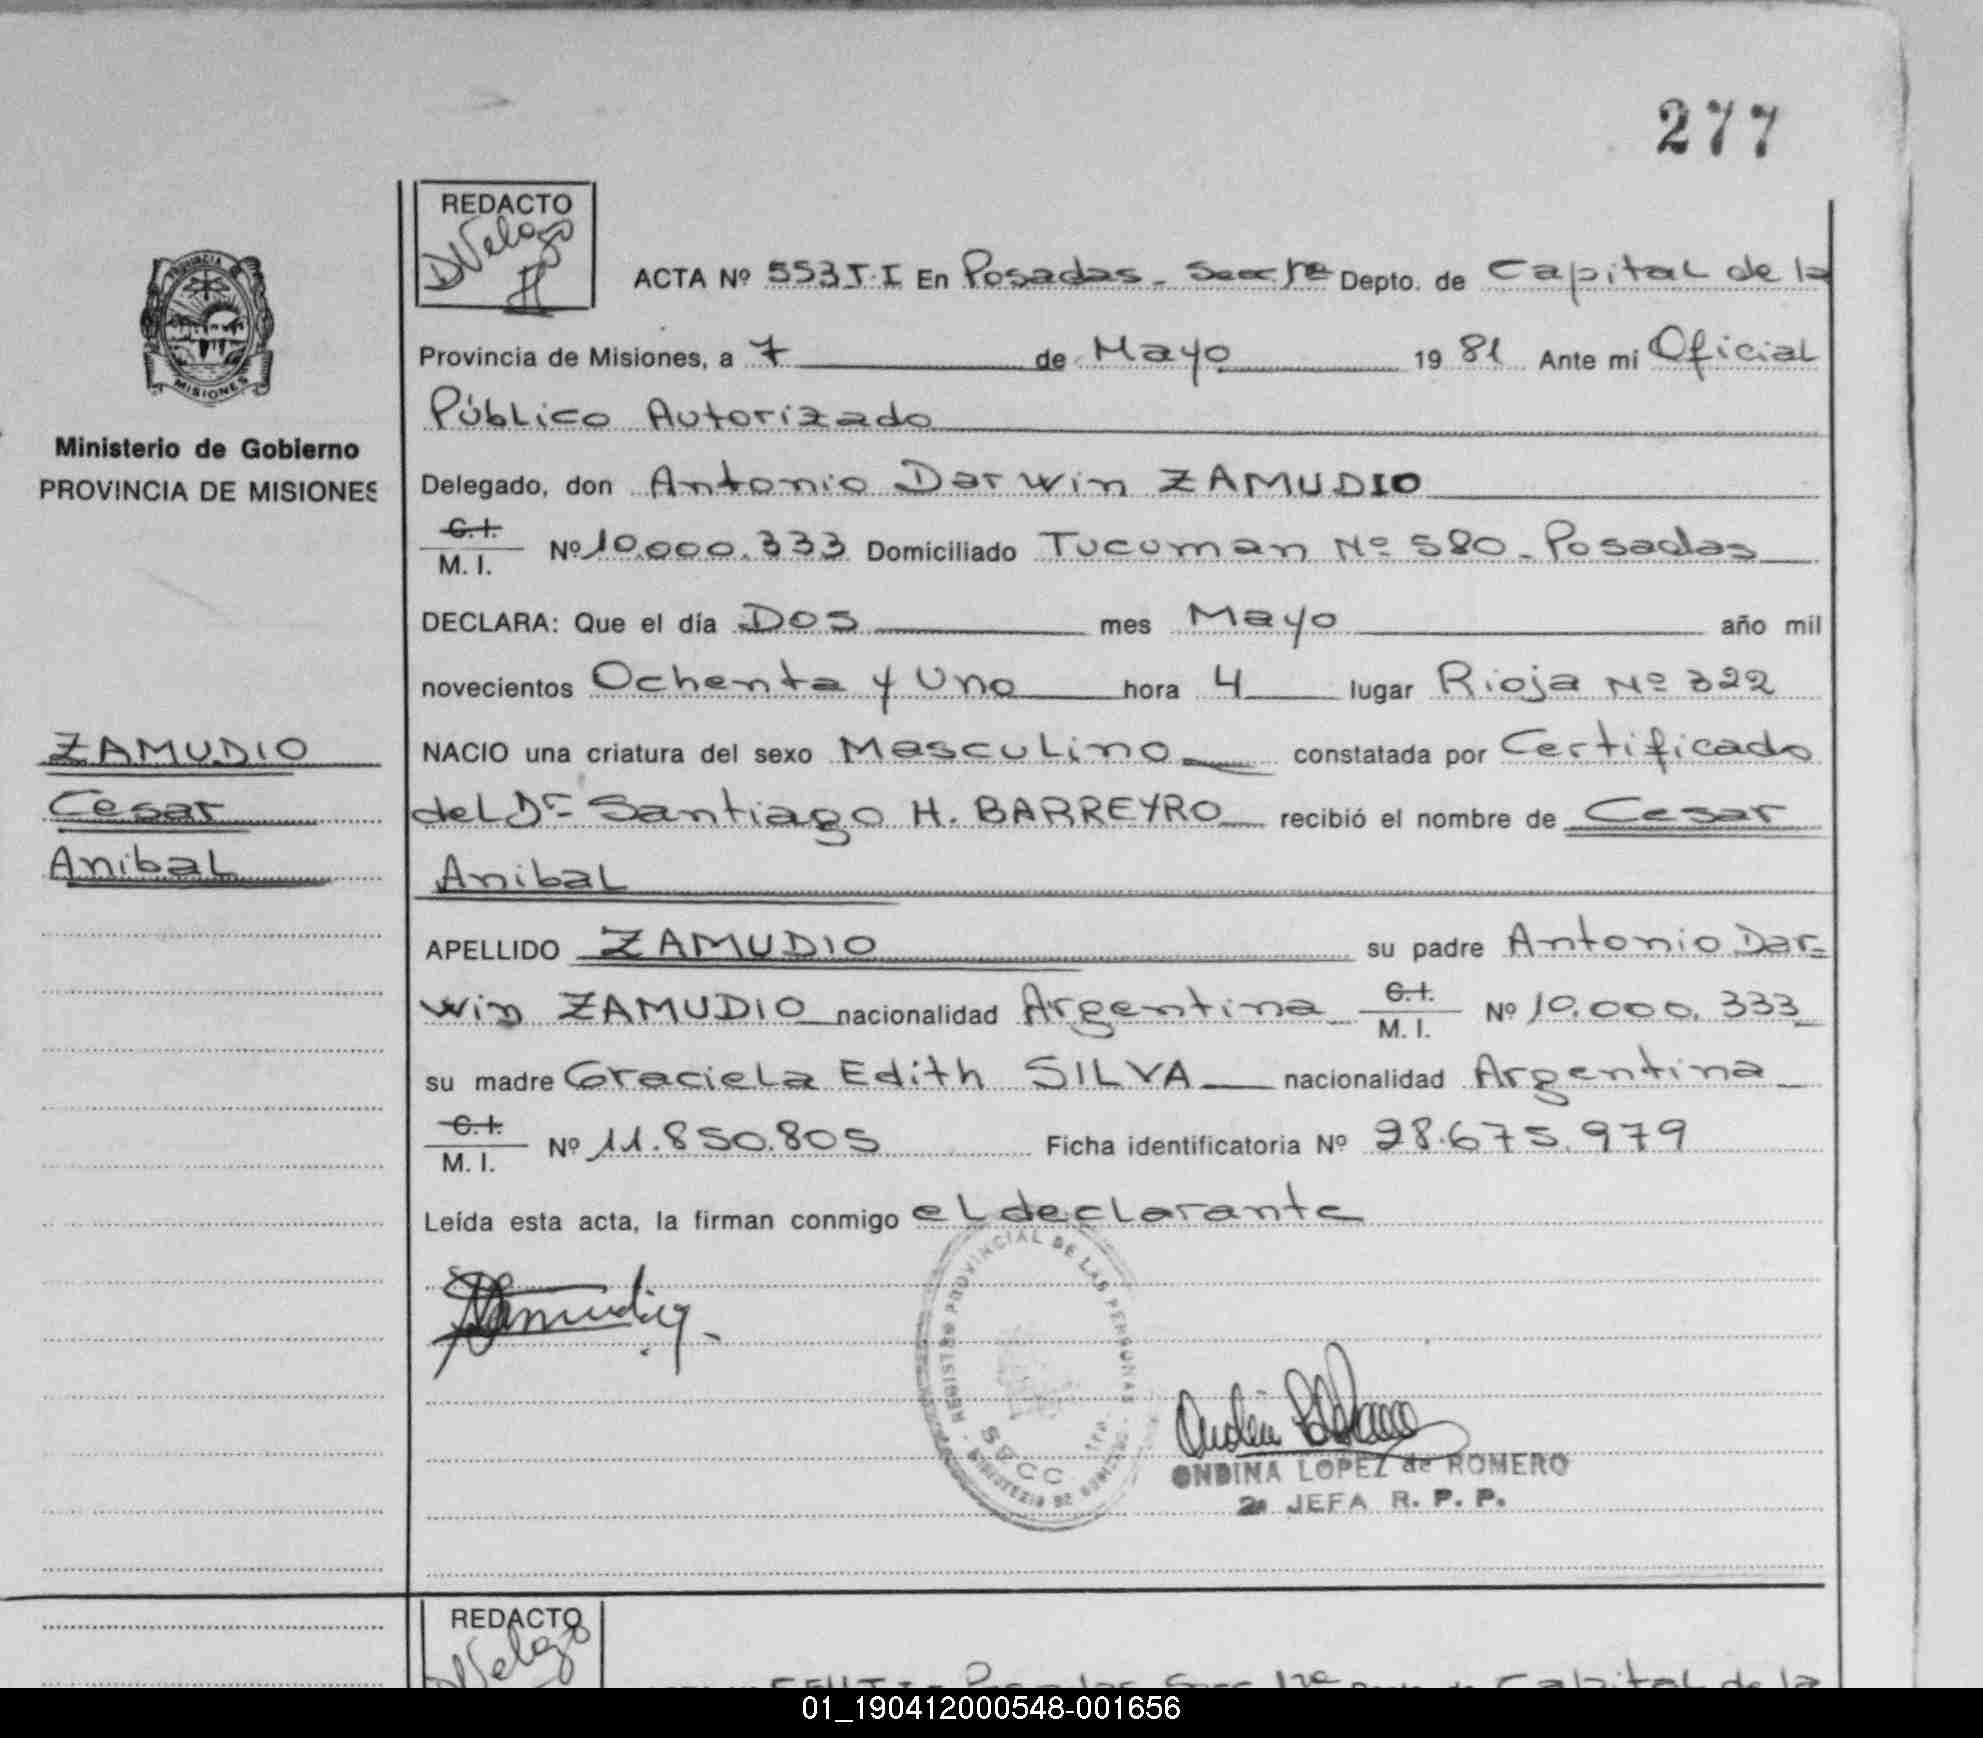 277
REDACTO
DVelozo
ACTA Nº 553 T.I En Posadas - Secc 1ra Depto. de Capital de la
Provincia de Misiones, a 7 de Mayo 19 81 Ante mi Oficial
Público Autorizado
PROVINCIA DE
MISIONES
Ministerio de Gobierno
PROVINCIA DE MISIONES
Delegado, don Antonio Darwin ZAMUDIO
C.I.
M. I. Nº 10.000.333 Domiciliado Tucuman Nº 580 - Posadas
DECLARA: Que el día Dos mes Mayo año mil
novecientos Ochenta y Uno hora 4 lugar Rioja Nº 322
ZAMUDIO
Cesar
Anibal
NACIO una criatura del sexo Masculino constatada por Certificado
del Dr Santiago H. BARREYRO recibió el nombre de Cesar
Anibal
APELLIDO ZAMUDIO su padre Antonio Dar=
win ZAMUDIO nacionalidad Argentina C.I. M. I. Nº 10.000.333
su madre Graciela Edith SILVA nacionalidad Argentina
C.I.
M. I. Nº 11.850.805 Ficha identificatoria Nº 28.675.979
Leída esta acta, la firman conmigo el declarante
REGISTRO PROVINCIAL DE LAS PERSONAS
MINISTERIO DE GOBIERNO
ONDINA LOPEZ de ROMERO
2a JEFA R. P. P.
REDACTO
DVelozo
Capital de la
01_190412000548-001656